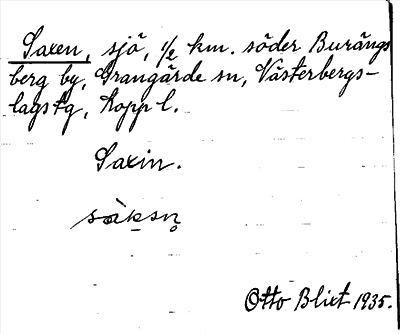 Saxen, sjö, 1/2 km. söder Burängs
berg by, Grangärde sn, Västerbergs-
lags tg, Kopp l.
Saxin.
sàksn̥
Otto Blixt 1935.